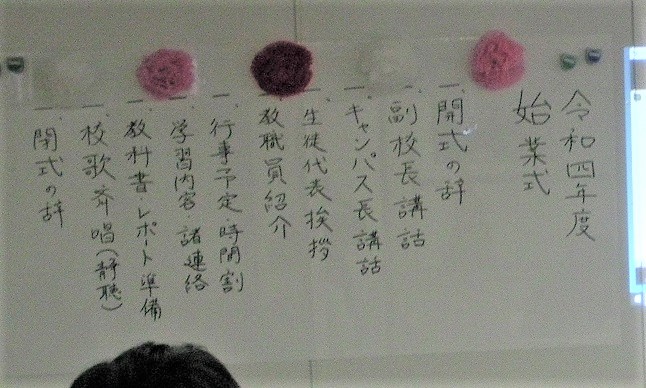 令和四年度
始業式
一、開式の辞
一、副校長講話
一、キャンパス長講話
一、生徒代表挨拶
一、教職員紹介
一、行事予定 時間割
一、学習内容 諸連絡
一、教科書・レポート準備
一、校歌斉唱(静聴)
一、閉式の辞